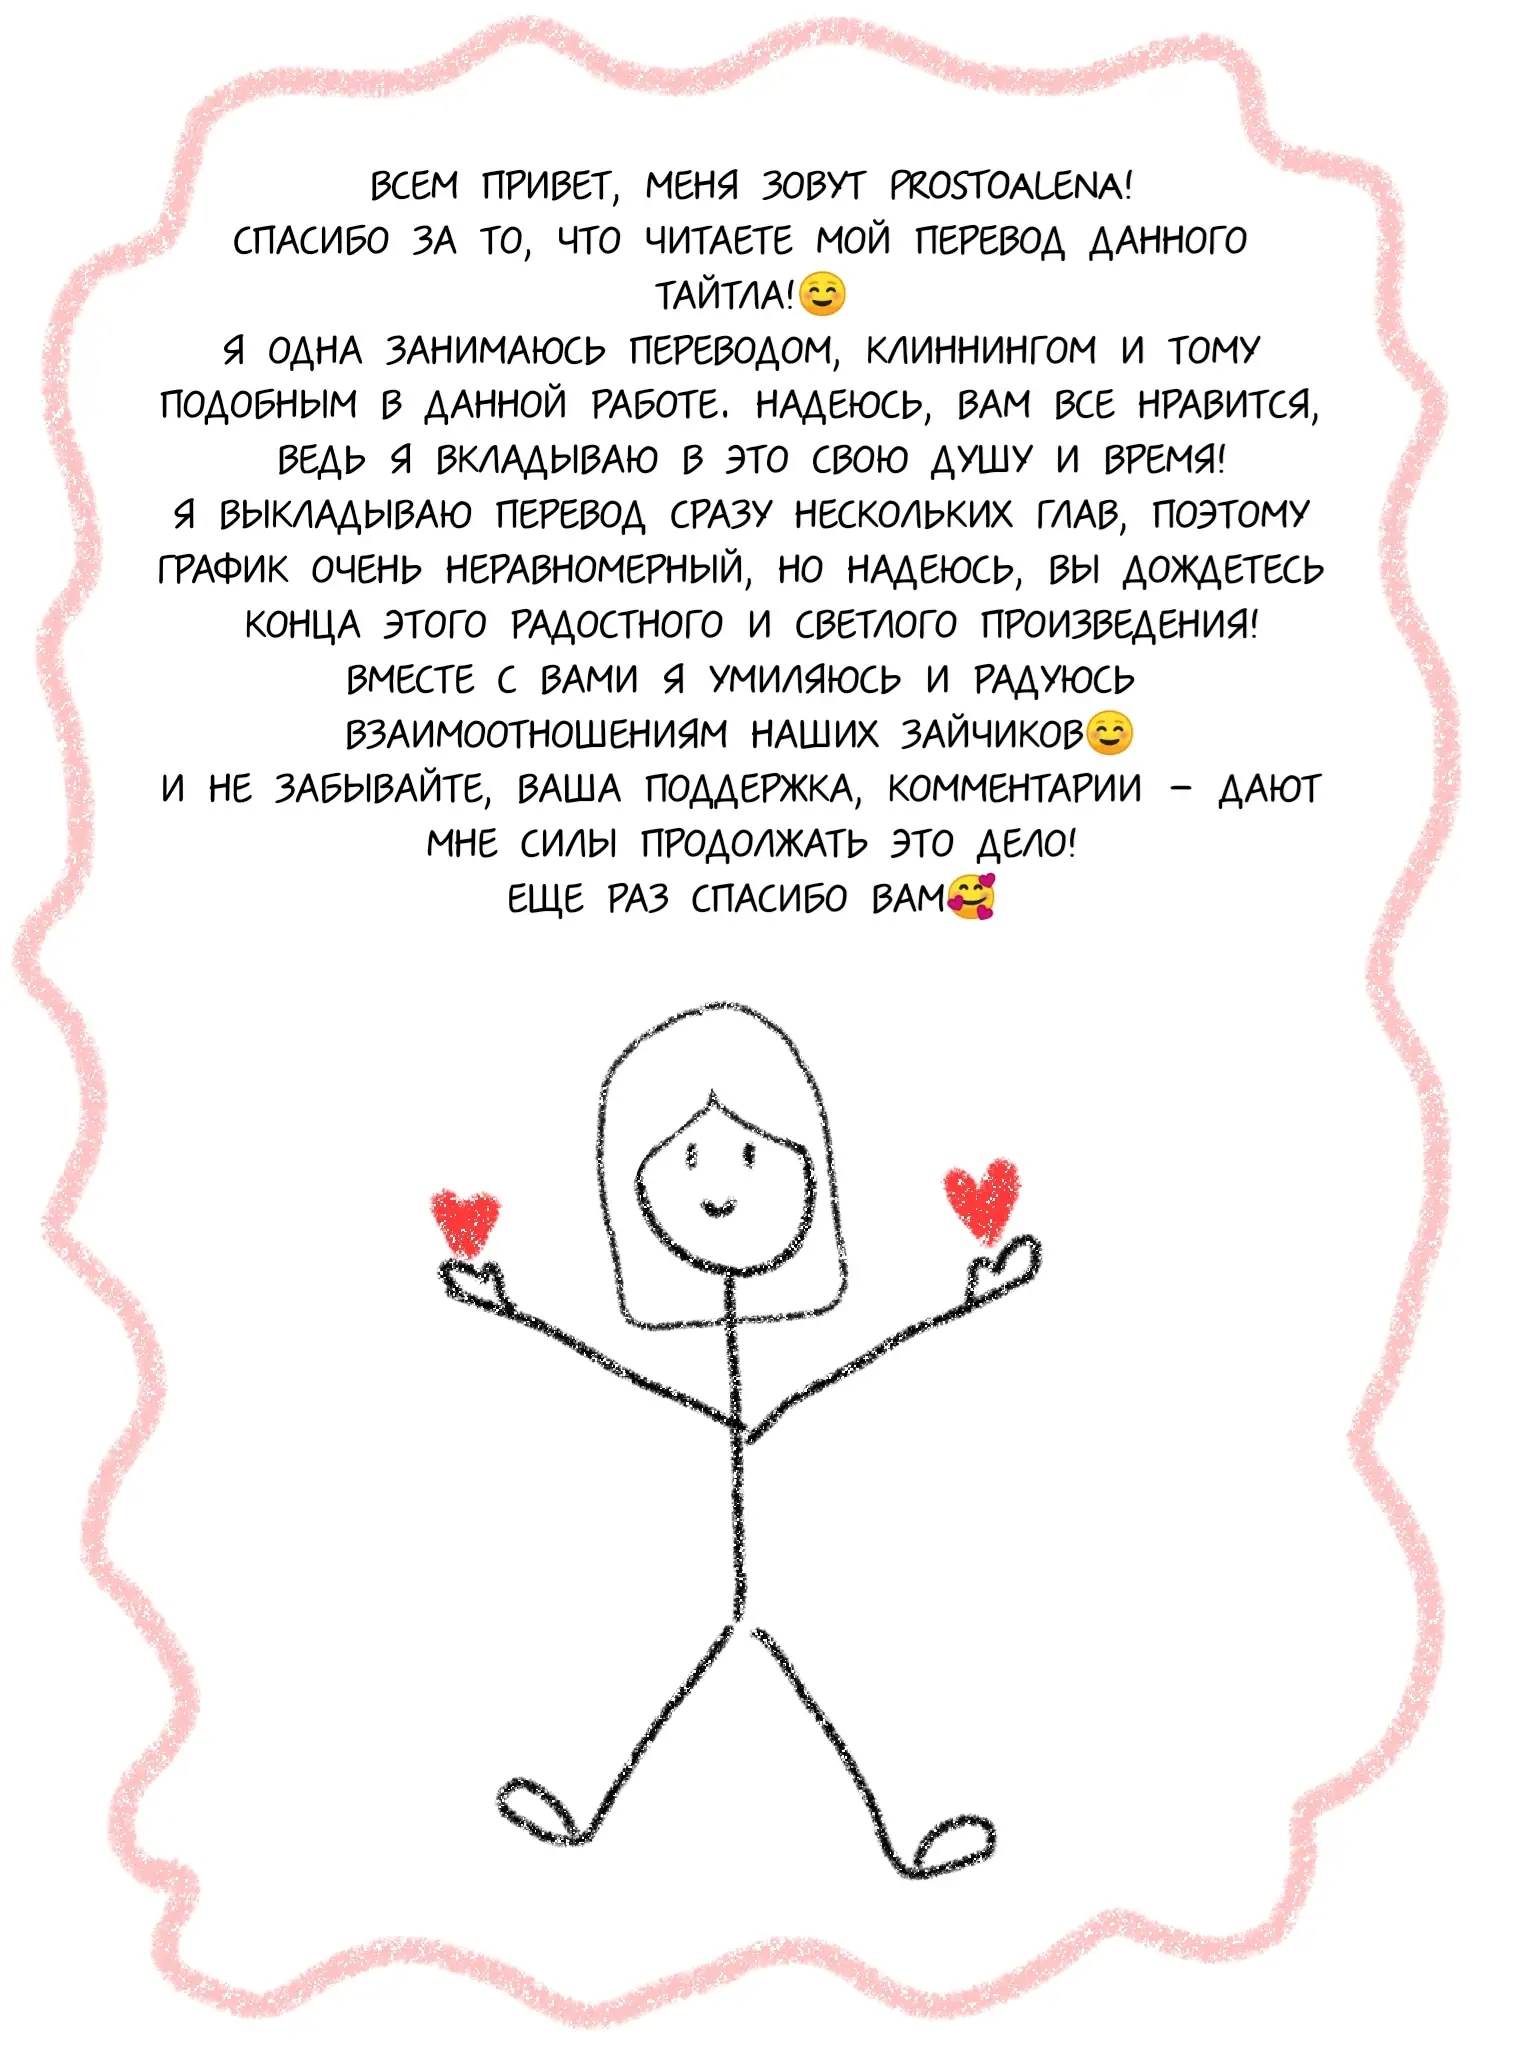 ВСЕМ ПРИВЕТ, МЕНЯ ЗОВУТ PROSTOALENA!
СПАСИБО ЗА ТО, ЧТО ЧИТАЕТЕ МОЙ ПЕРЕВОД ДАННОГО
ТАЙТЛА!☺️
Я ОДНА ЗАНИМАЮСЬ ПЕРЕВОДОМ, КЛИННИНГОМ И ТОМУ
ПОДОБНЫМ В ДАННОЙ РАБОТЕ. НАДЕЮСЬ, ВАМ ВСЕ НРАВИТСЯ,
ВЕДЬ Я ВКЛАДЫВАЮ В ЭТО СВОЮ ДУШУ И ВРЕМЯ!
Я ВЫКЛАДЫВАЮ ПЕРЕВОД СРАЗУ НЕСКОЛЬКИХ ГЛАВ, ПОЭТОМУ
ГРАФИК ОЧЕНЬ НЕРАВНОМЕРНЫЙ, НО НАДЕЮСЬ, ВЫ ДОЖДЕТЕСЬ
КОНЦА ЭТОГО РАДОСТНОГО И СВЕТЛОГО ПРОИЗВЕДЕНИЯ!
ВМЕСТЕ С ВАМИ Я УМИЛЯЮСЬ И РАДУЮСЬ
ВЗАИМООТНОШЕНИЯМ НАШИХ ЗАЙЧИКОВ☺️
И НЕ ЗАБЫВАЙТЕ, ВАША ПОДДЕРЖКА, КОММЕНТАРИИ – ДАЮТ
МНЕ СИЛЫ ПРОДОЛЖАТЬ ЭТО ДЕЛО!
ЕЩЕ РАЗ СПАСИБО ВАМ🥰